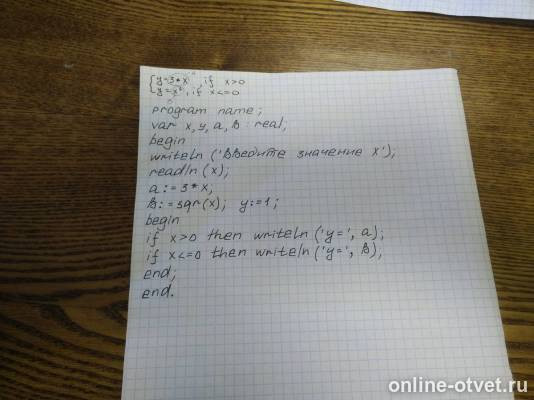 {y=3*x, if x>0
{y=x², if x<=0
program name;
var x,y,a,b: real;
begin
writeln ('Введите значение x');
readln(x);
a:=3*x;
b:=sqr(x); y:=1;
begin
if x>0 then writeln('y=', a);
if x<=0 then writeln('y=', b);
end;
end.
online-otvet.ru